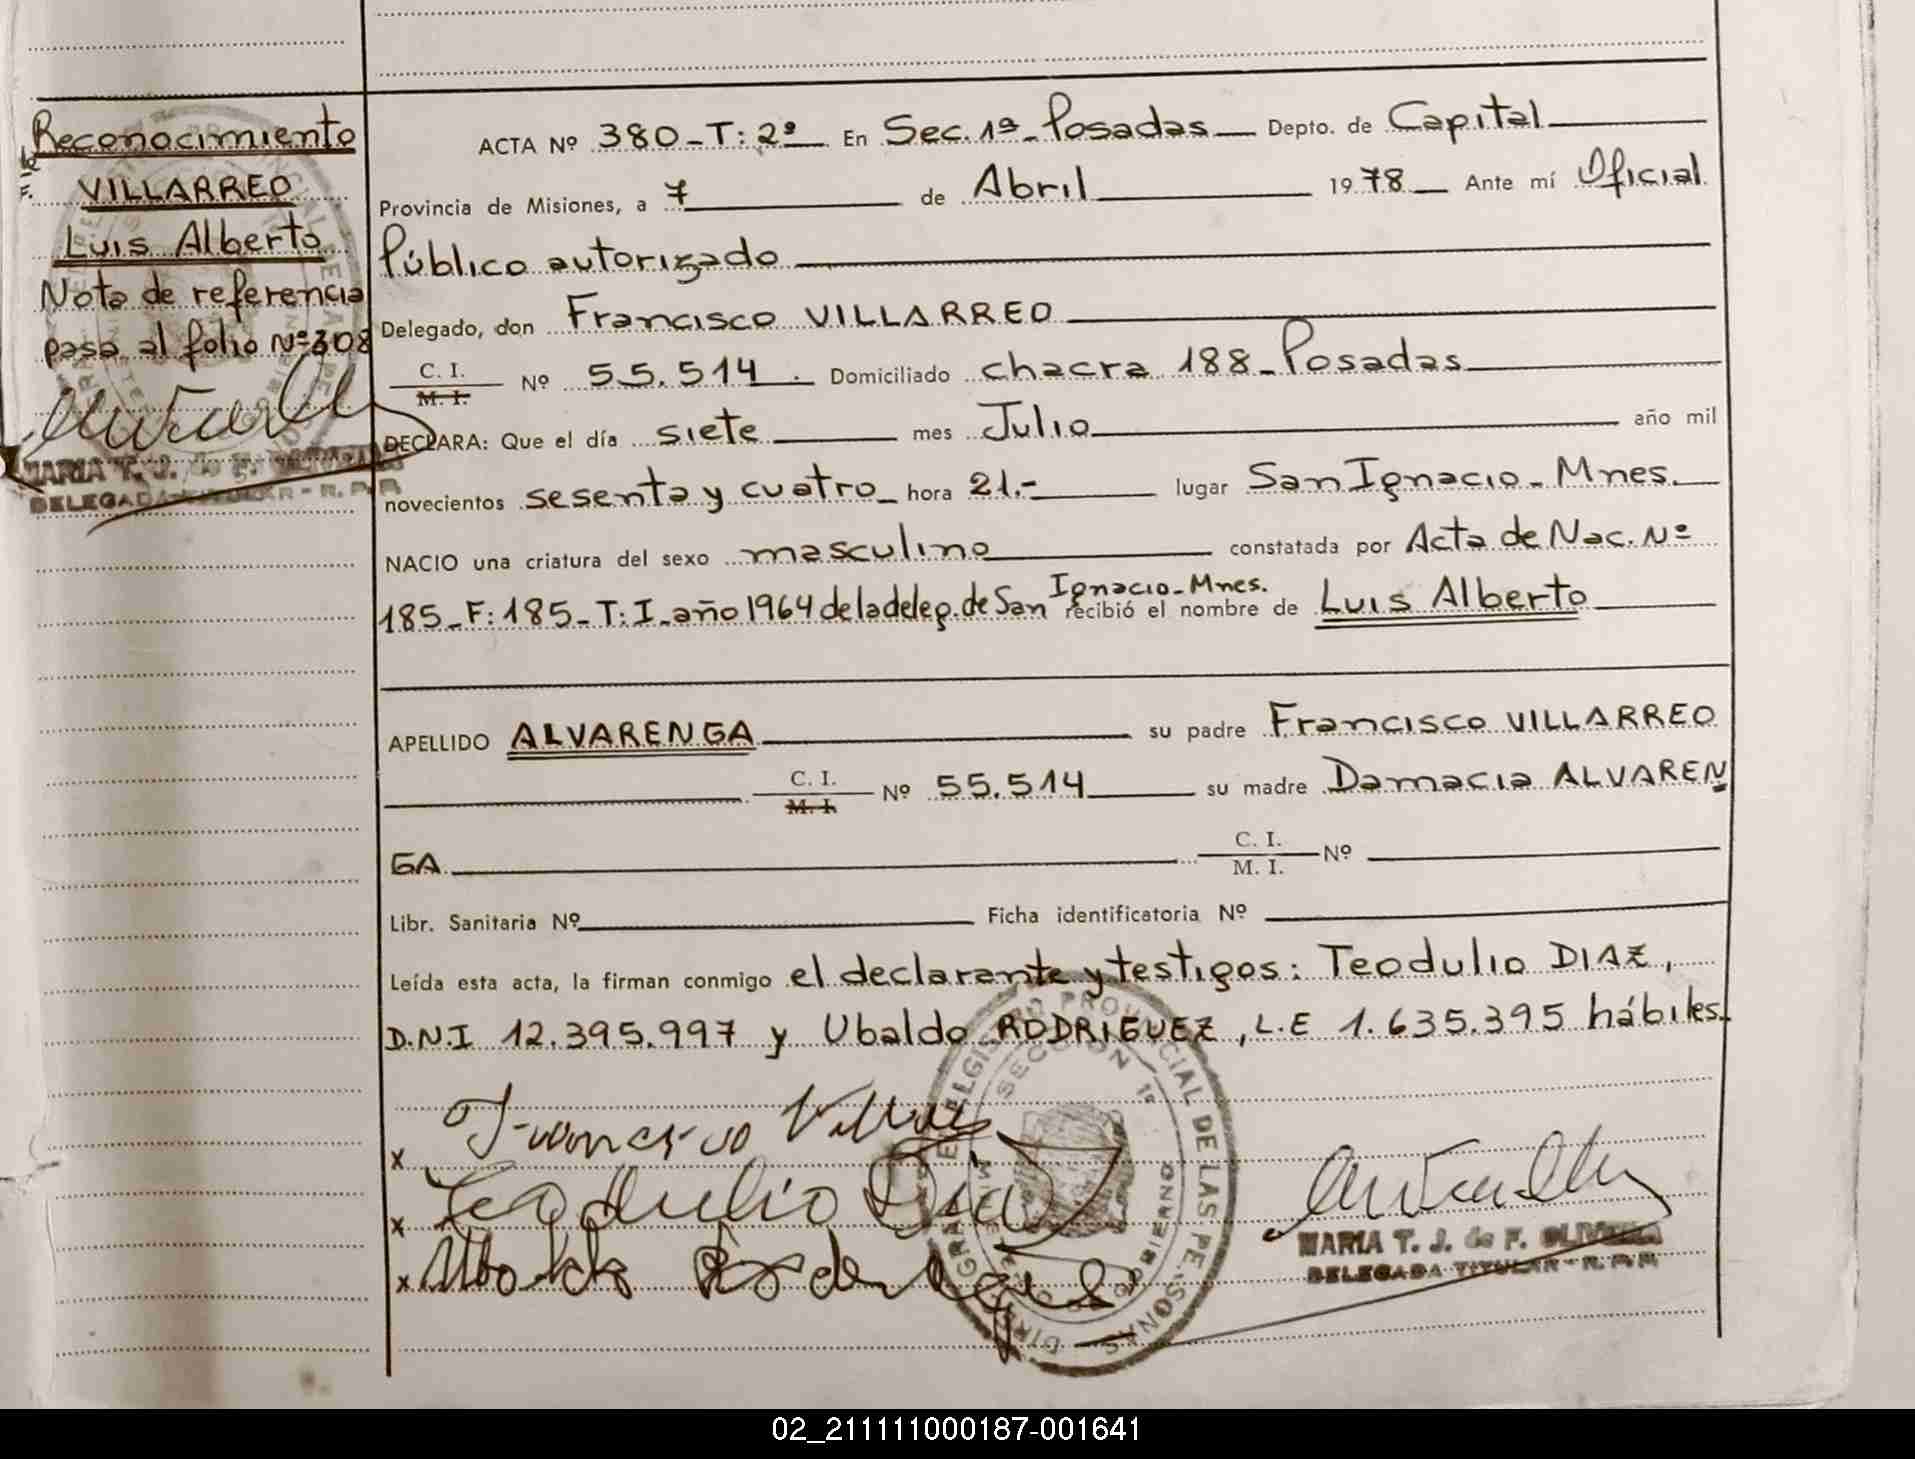 Reconocimiento
VILLARREO
Luis Alberto
Nota de referencia
pasa al folio Nº 308
MARIA T. J. de F. OLIVEIRA
DELEGADA TITULAR - R. P. P.
ACTA Nº 380-T: 2º En Sec. 1ª Posadas Depto. de Capital
Provincia de Misiones, a 7 de Abril 1978 Ante mí Oficial
Público autorizado
Delegado, don Francisco VILLARREO
C. I.
M. I. Nº 55.514. Domiciliado chacra 188-Posadas
DECLARA: Que el día siete mes Julio año mil
novecientos sesenta y cuatro hora 21.- lugar San Ignacio-Mnes.
NACIO una criatura del sexo masculino constatada por Acta de Nac. Nº
185-F: 185-T: I-año 1964 de la deleg. de San Ignacio-Mnes. recibió el nombre de Luis Alberto
APELLIDO ALVARENGA su padre Francisco VILLARREO
C. I.
M. I. Nº 55.514 su madre Damacia ALVAREN
GA C. I.
M. I. Nº
Libr. Sanitaria Nº Ficha identificatoria Nº
Leída esta acta, la firman conmigo el declarante y testigos: Teodulio DIAZ,
D.N.I 12.395.997 y Ubaldo RODRIGUEZ, L.E 1.635.395 hábiles.
x Francisco
x Teodulio Diaz
x
SECCION 1ª
MARIA T. J. de F. OLIVEIRA
DELEGADA TITULAR - R. P. P.
02_211111000187-001641